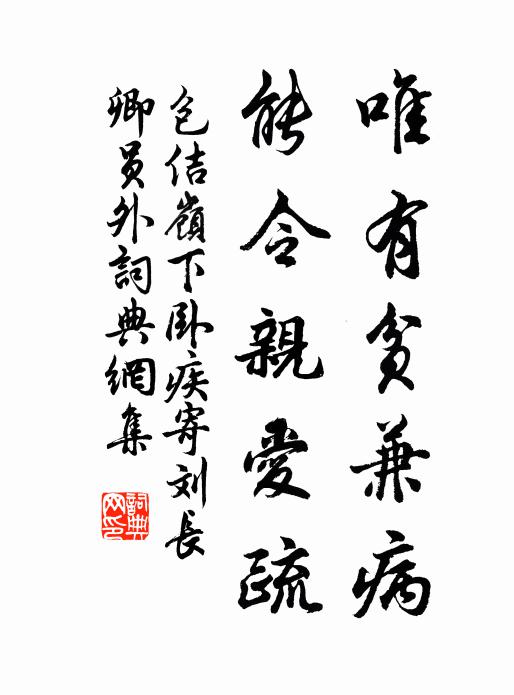 唯有貧兼病
能令親愛疏
包佶嶺下卧疾寄刘長
卿員外詞典網集
詞典
网印